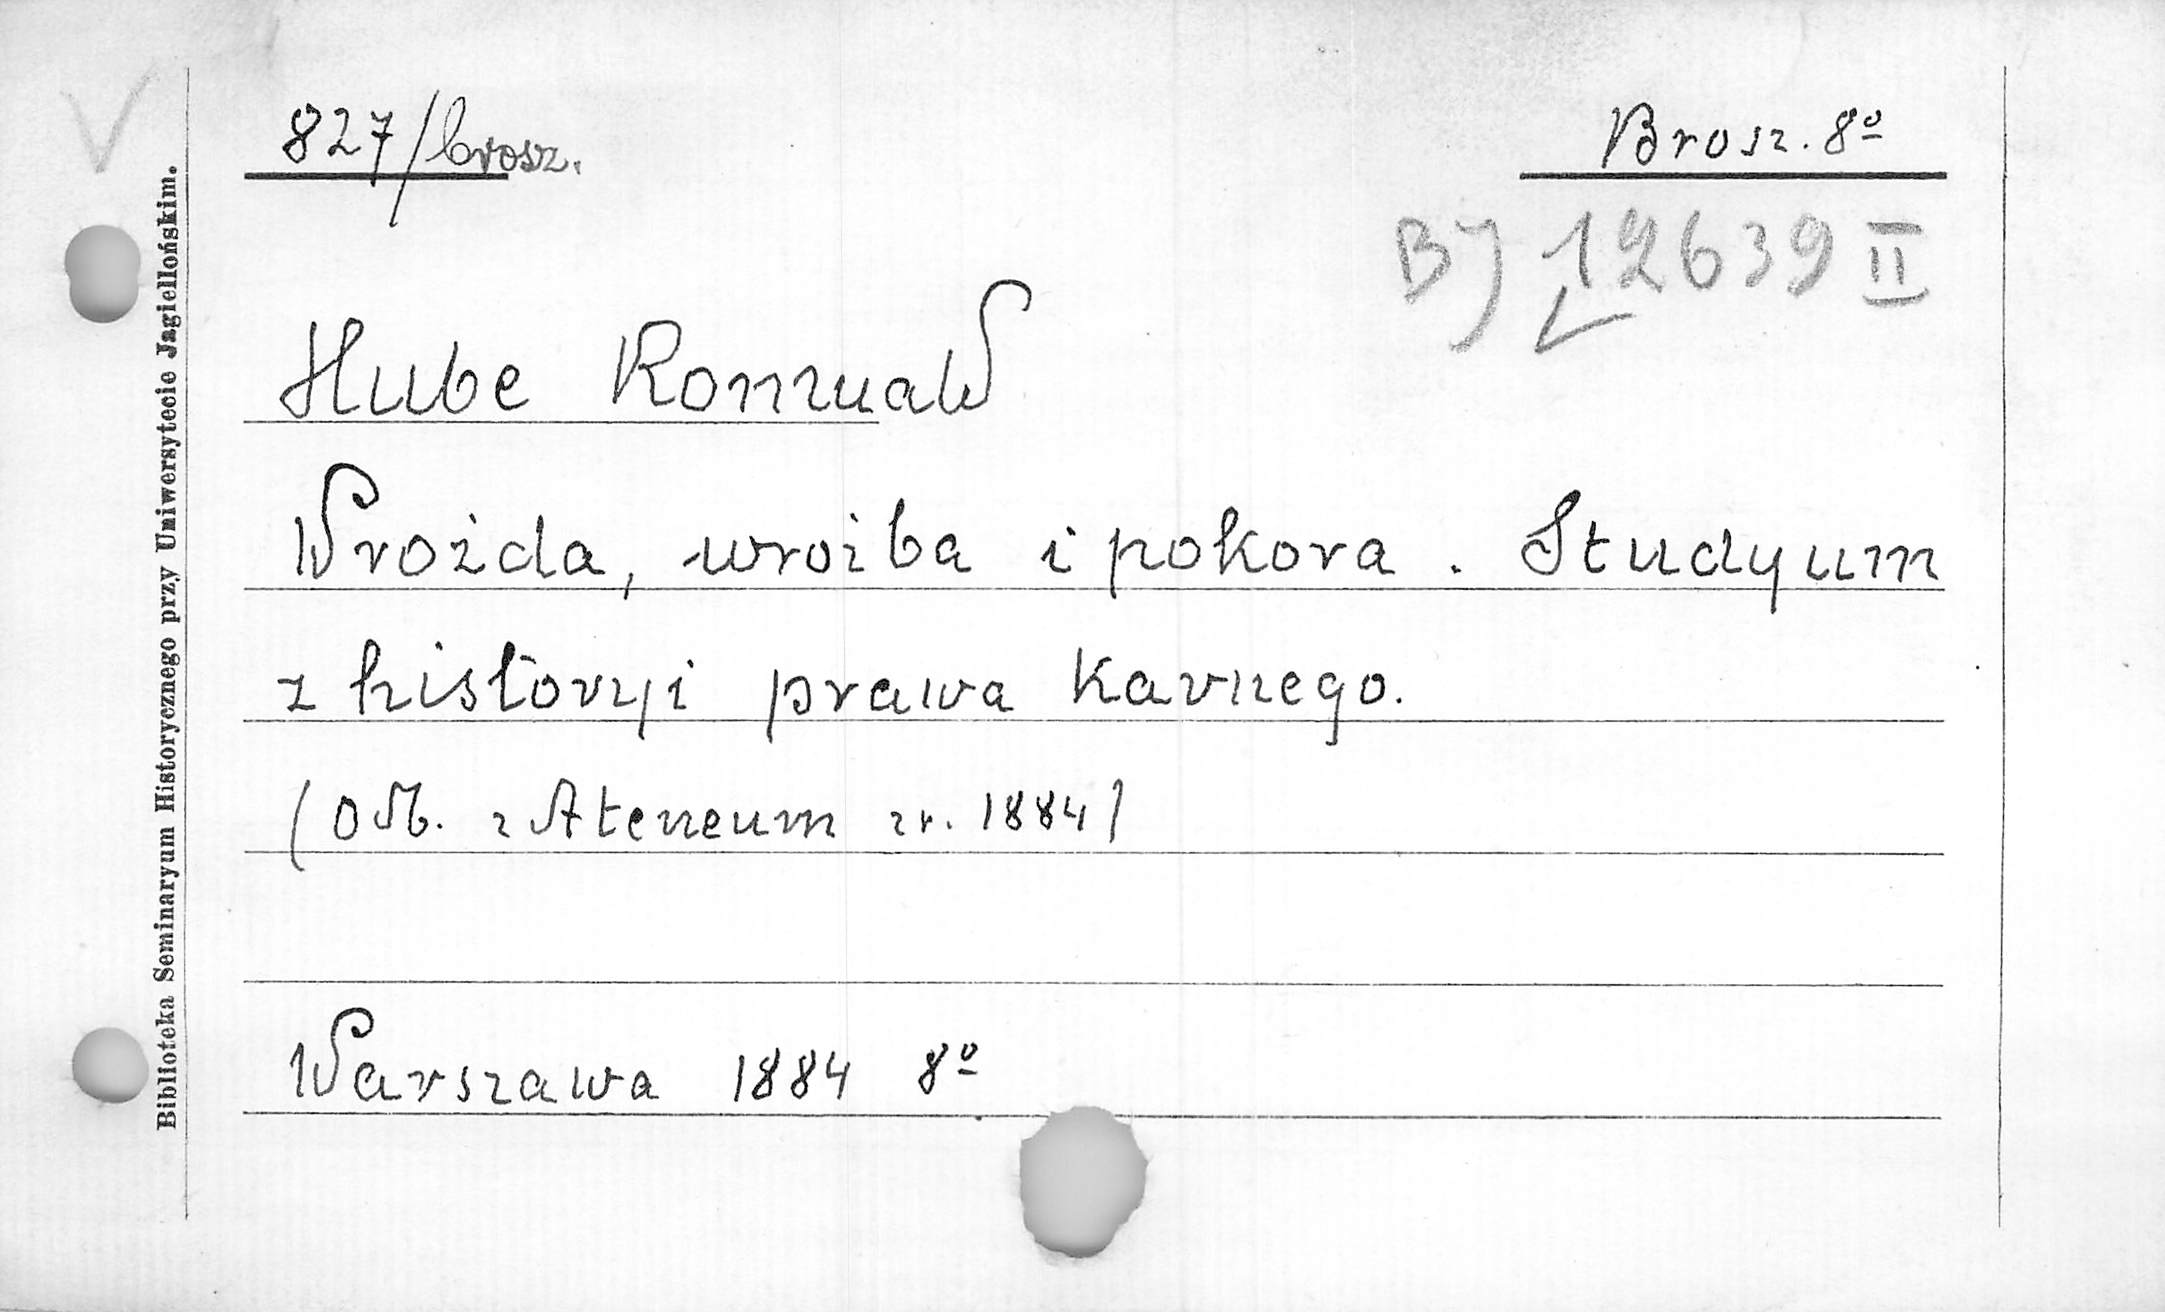 827/brosz.
Brosz. 8º
BJ 12639 II
Hube Romuald
Wrożda, wróżba i pokora. Studyum
z historyi prawa karnego.
(Odb. z Ateneum z r. 1884)
Warszawa 1884 8º
Biblioteka Seminaryum Historycznego przy Uniwersytecie Jagiellońskim.